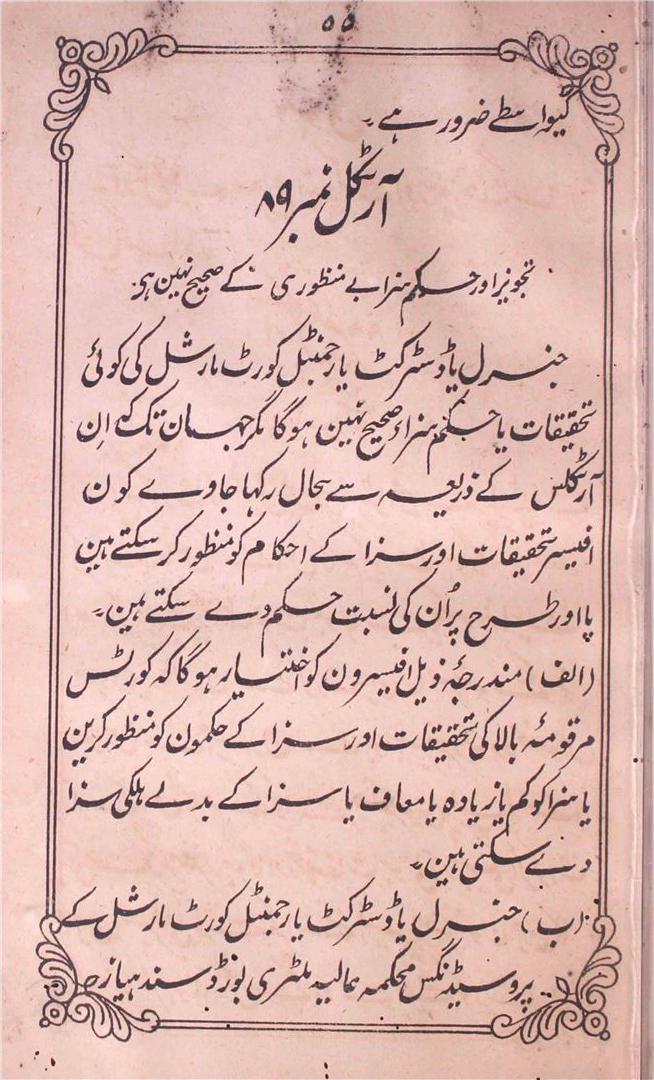 ۵۵
کیواسطے ضرور ہے۔
آرٹکل نمبر ۸۹
تجویز اور حکم سزا بے منظوری کے صحیح نہین ہی۔
جنرل یا ڈسٹرکٹ یا رجمنٹل کورٹ مارشل کی کوئی
تحقیقات یا حکم سزاء صحیح نہین ہوگا مگر جہان تک کہ اِن
آرٹکلس کے ذریعہ سے بحال رکہا جاوے کون
افیسر تحقیقات اور سزا کے احکام کو منظور کر سکتے ہین
یا اور طرح پر اُن کی نسبت حکم دے سکتے ہین۔
(الف) مندرجۂ ذیل افیسرون کو اختیار ہوگا کہ کورٹس
مرقومۂ بالا کی تحقیقات اور سزا کے حکمون کو منظور کرین
یا سزا کو کم یا زیادہ یا معاف یا سزا کے بدلے ہلکی سزا
دے سکتی ہین۔
(ب) جنرل یا ڈسٹرکٹ یا رجمنٹل کورٹ مارشل کے
پروسیڈنگس محکمہ عالیہ ملٹری بورڈ سند ہیاز